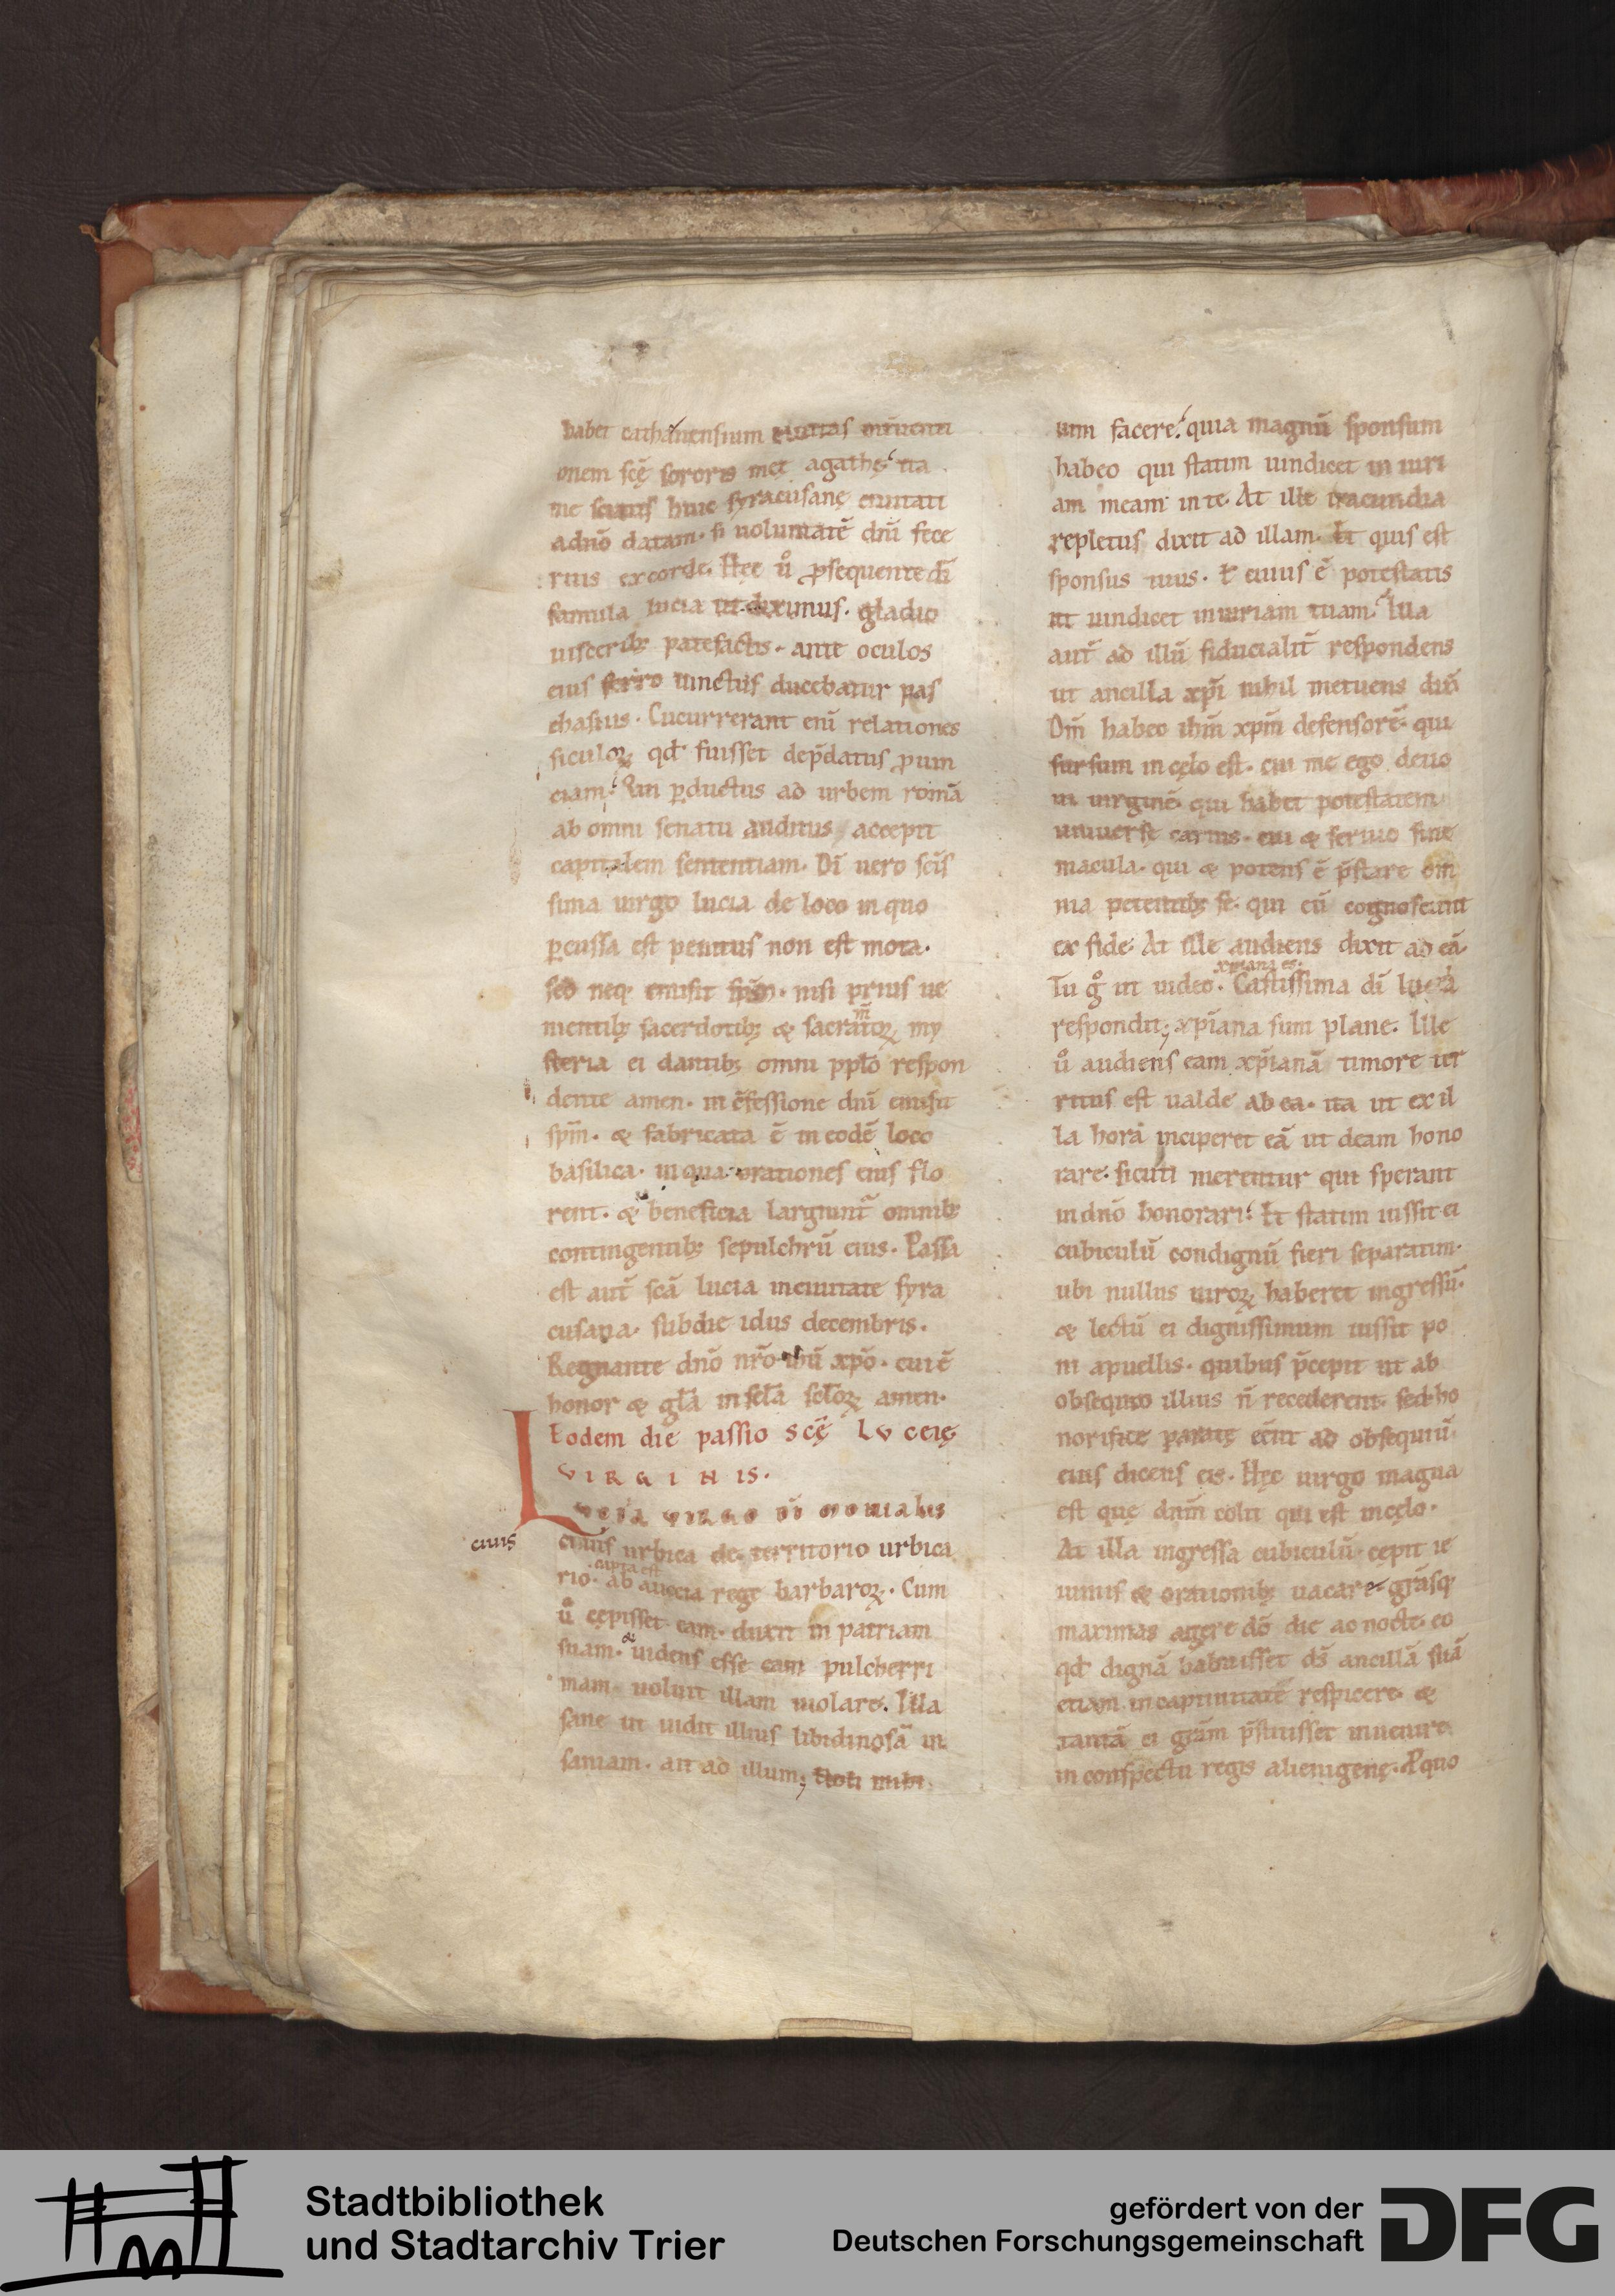 habet cathanensium ciuitas
onem scę sororis meę agathę ita
me scitis huic syracusanę ciuitati
adnō datam. si uoluntatē dnī fece
ritis excorde. Hęc ů ꝓsequente dī
famula lucia ut diximus. gladio
uiscerib; patefactis. ante oculos
eius ferro uinctus ducebatur pas
chasius. Cucurrerant enī relationes
siculoꝝ qđ fuisset dep̄datus ꝓuin
ciam. Qui ꝑductus ad urbem romā
ab omni senatu auditus accepit
capitalem sententiam. Dī uero scīs
sima uirgo lucia de loco in quo
ꝑcussa est penitus non est mota.
sed neq; emisit spm̄. nisi prius ue
nientib; sacerdotib; & sacratoꝝ my
steria ei dantib; omni pplo respon
dente amen. in c̄fessione dnī emisit
spm̄. & fabricata ē in eodē loco
basilica. in qua orationes eius flo
rent. & beneficia largiunt̄ omnib;
contingentib; sepulchrū eius. Passa
est aut̄ scā lucia inciuitate syra
cusana. subdie idus decembris.
Regnante dnō nrō ihū xpō. cui ē
honor & glā in sclā scloꝝ amen.
Eodem die passio scę Luceię
VIRGINIS.
Luceia virgo
ciuis
ciuius urbica de territorio urbica
capta est
rio. ab auceia rege barbaroꝝ. Cum
ů cępisset eam. duxit in patriam
suam. & uidens esse eam pulcherri
mam. uoluit illam uiolare. Illa
sane ut uidit illius libidinosā in
saniam. ait ad illum; Noli mihi
uim facere. quia magnū sponsum
habeo qui statim uindicet in iuri
am meam in te. At ille iracundia
repletus dixit ad illam. Et quis est
sponsus tuus. ł cuius ē potestatis
ut uindicet iniuriam tuam. Illa
aut̄ ad illū fiducialit̄ respondens
ut ancilla xpī nihil metuens dix̄
Dnm̄ habeo ihm̄ xpm̄ defensorē. qui
sursum in cęlo est. cui me ego deuo
ui uirginē. qui habet potestatem
uniuersę carnis. cui & seruio sine
macula. qui & potens ē p̄stare om̄
nia petentib; se. qui eū cognoscunt
ex fide. At ille audiens dixit ad eā
xpiana es.
Tu g̊ ut uideo. Castissima dī lucia
respondit; xpiana sum plane. Ille
ů audiens eam xpianā timore ter
ritus est ualde ab ea. ita ut ex il
la hora inciperet eā ut deam hono
rare. sicuti merentur qui sperant
in dnō honorari. Et statim iussit ei
cubiculū condignū fieri separatim.
ubi nullus uiroꝝ haberet ingressū.
& lectū ei dignissimum iussit po
ni apuellis. quibus p̄cepit ut ab
obsequio illius n̄ recederent. sed ho
norifice ad obsequiū
eius dicens eis. Hęc uirgo magna
est quę dnm̄ colit qui est in cęlo.
At illa ingressa cubiculū. cepit ie
iuniis & orationib; uacare. grāsq;
maximas agere dō die ac nocte. eo
qđ dignā habuisset dš ancillā suā
etiam in captiuitatē respicere. &
tantā ei grām p̄stitisset inuenire
in conspectu regis alienigenę. Pquo
Stadtbibliothek
und Stadtarchiv Trier
gefördert von der
Deutschen Forschungsgemeinschaft
DFG